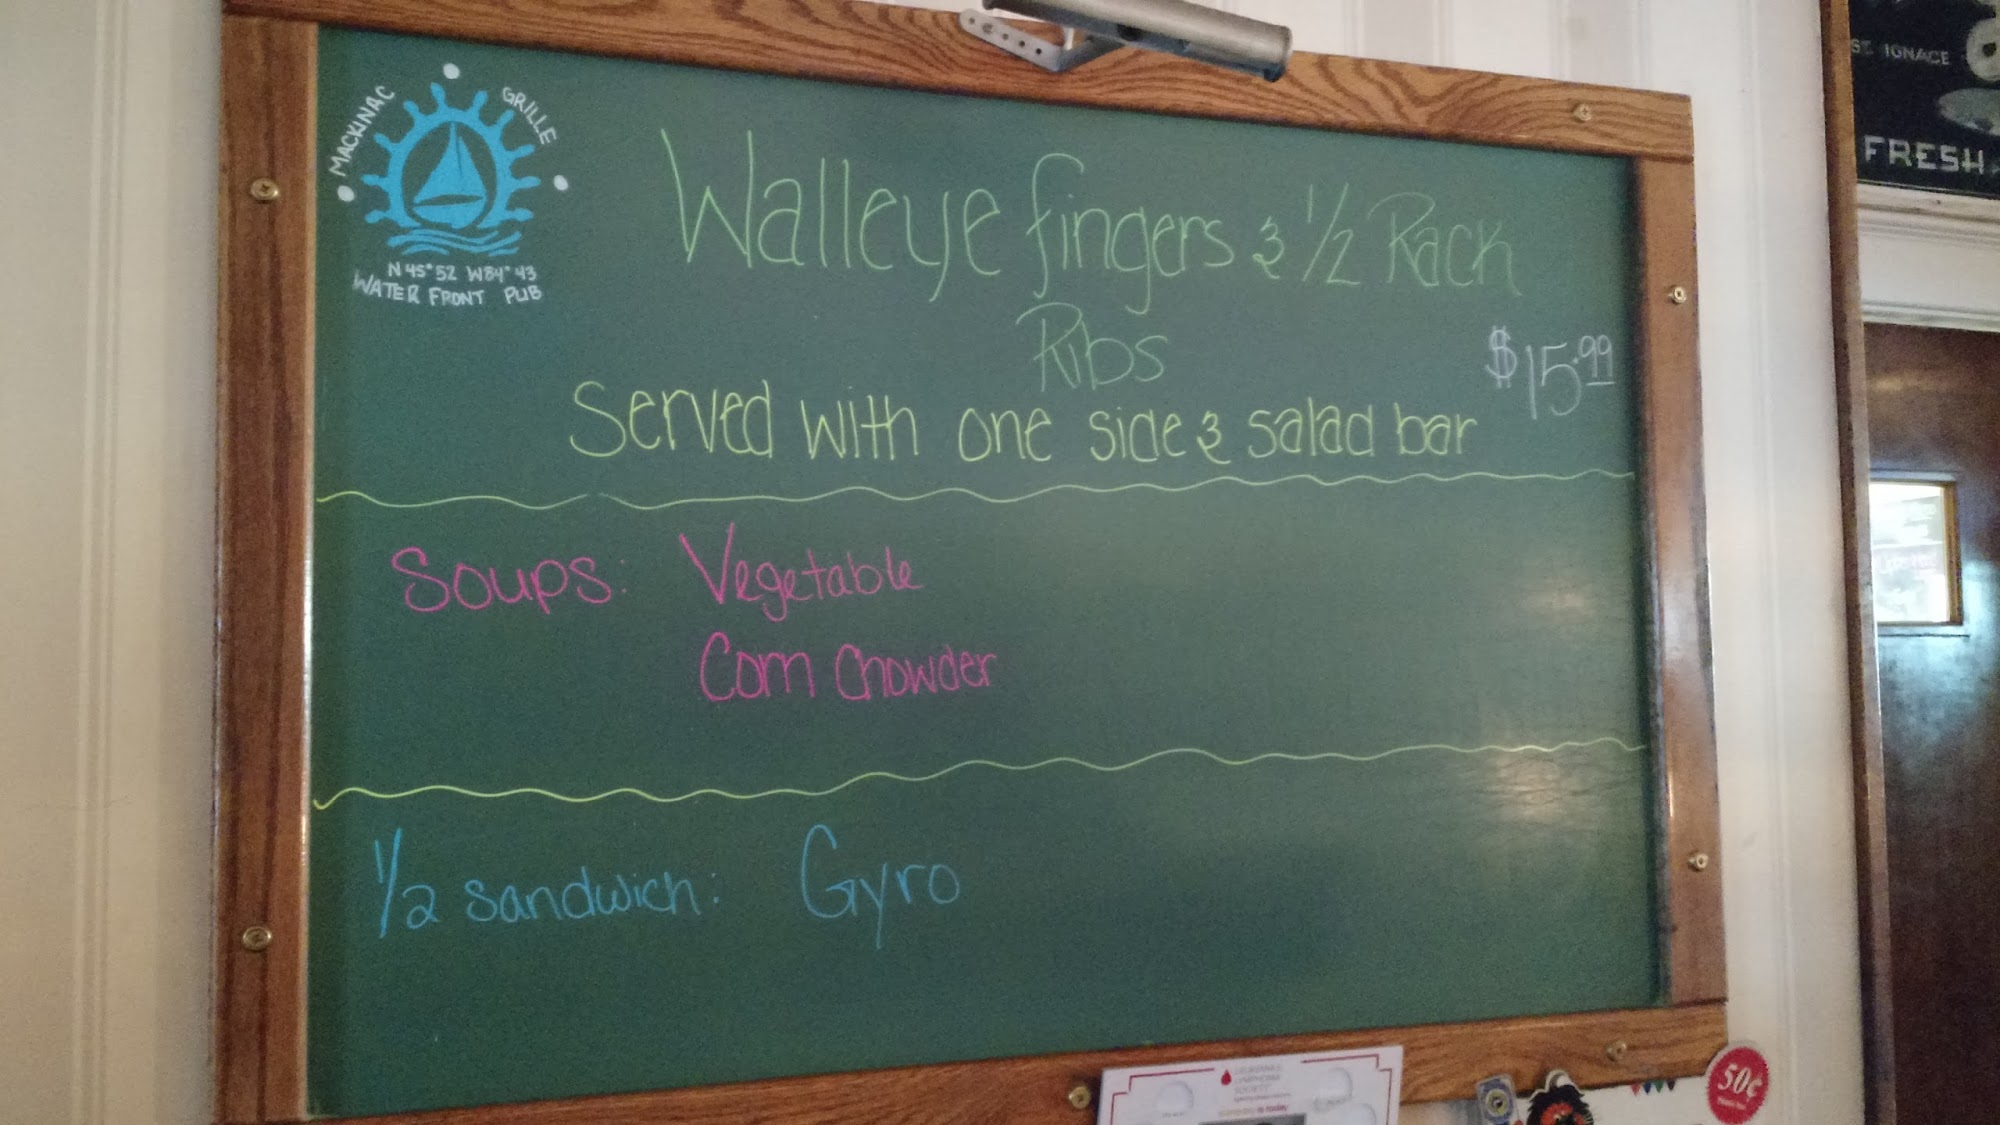 MACKINAC GRILLE
N 45° 52 W84° 43
WATER FRONT PUB
Walleye fingers & 1/2 Rack
Ribs
$15.99
Served with one side & salad bar
Soups: Vegetable
Corn Chowder
1/2 sandwich: Gyro
ST. IGNACE
FRESH
LEUKEMIA &
LYMPHOMA
SOCIETY
50¢